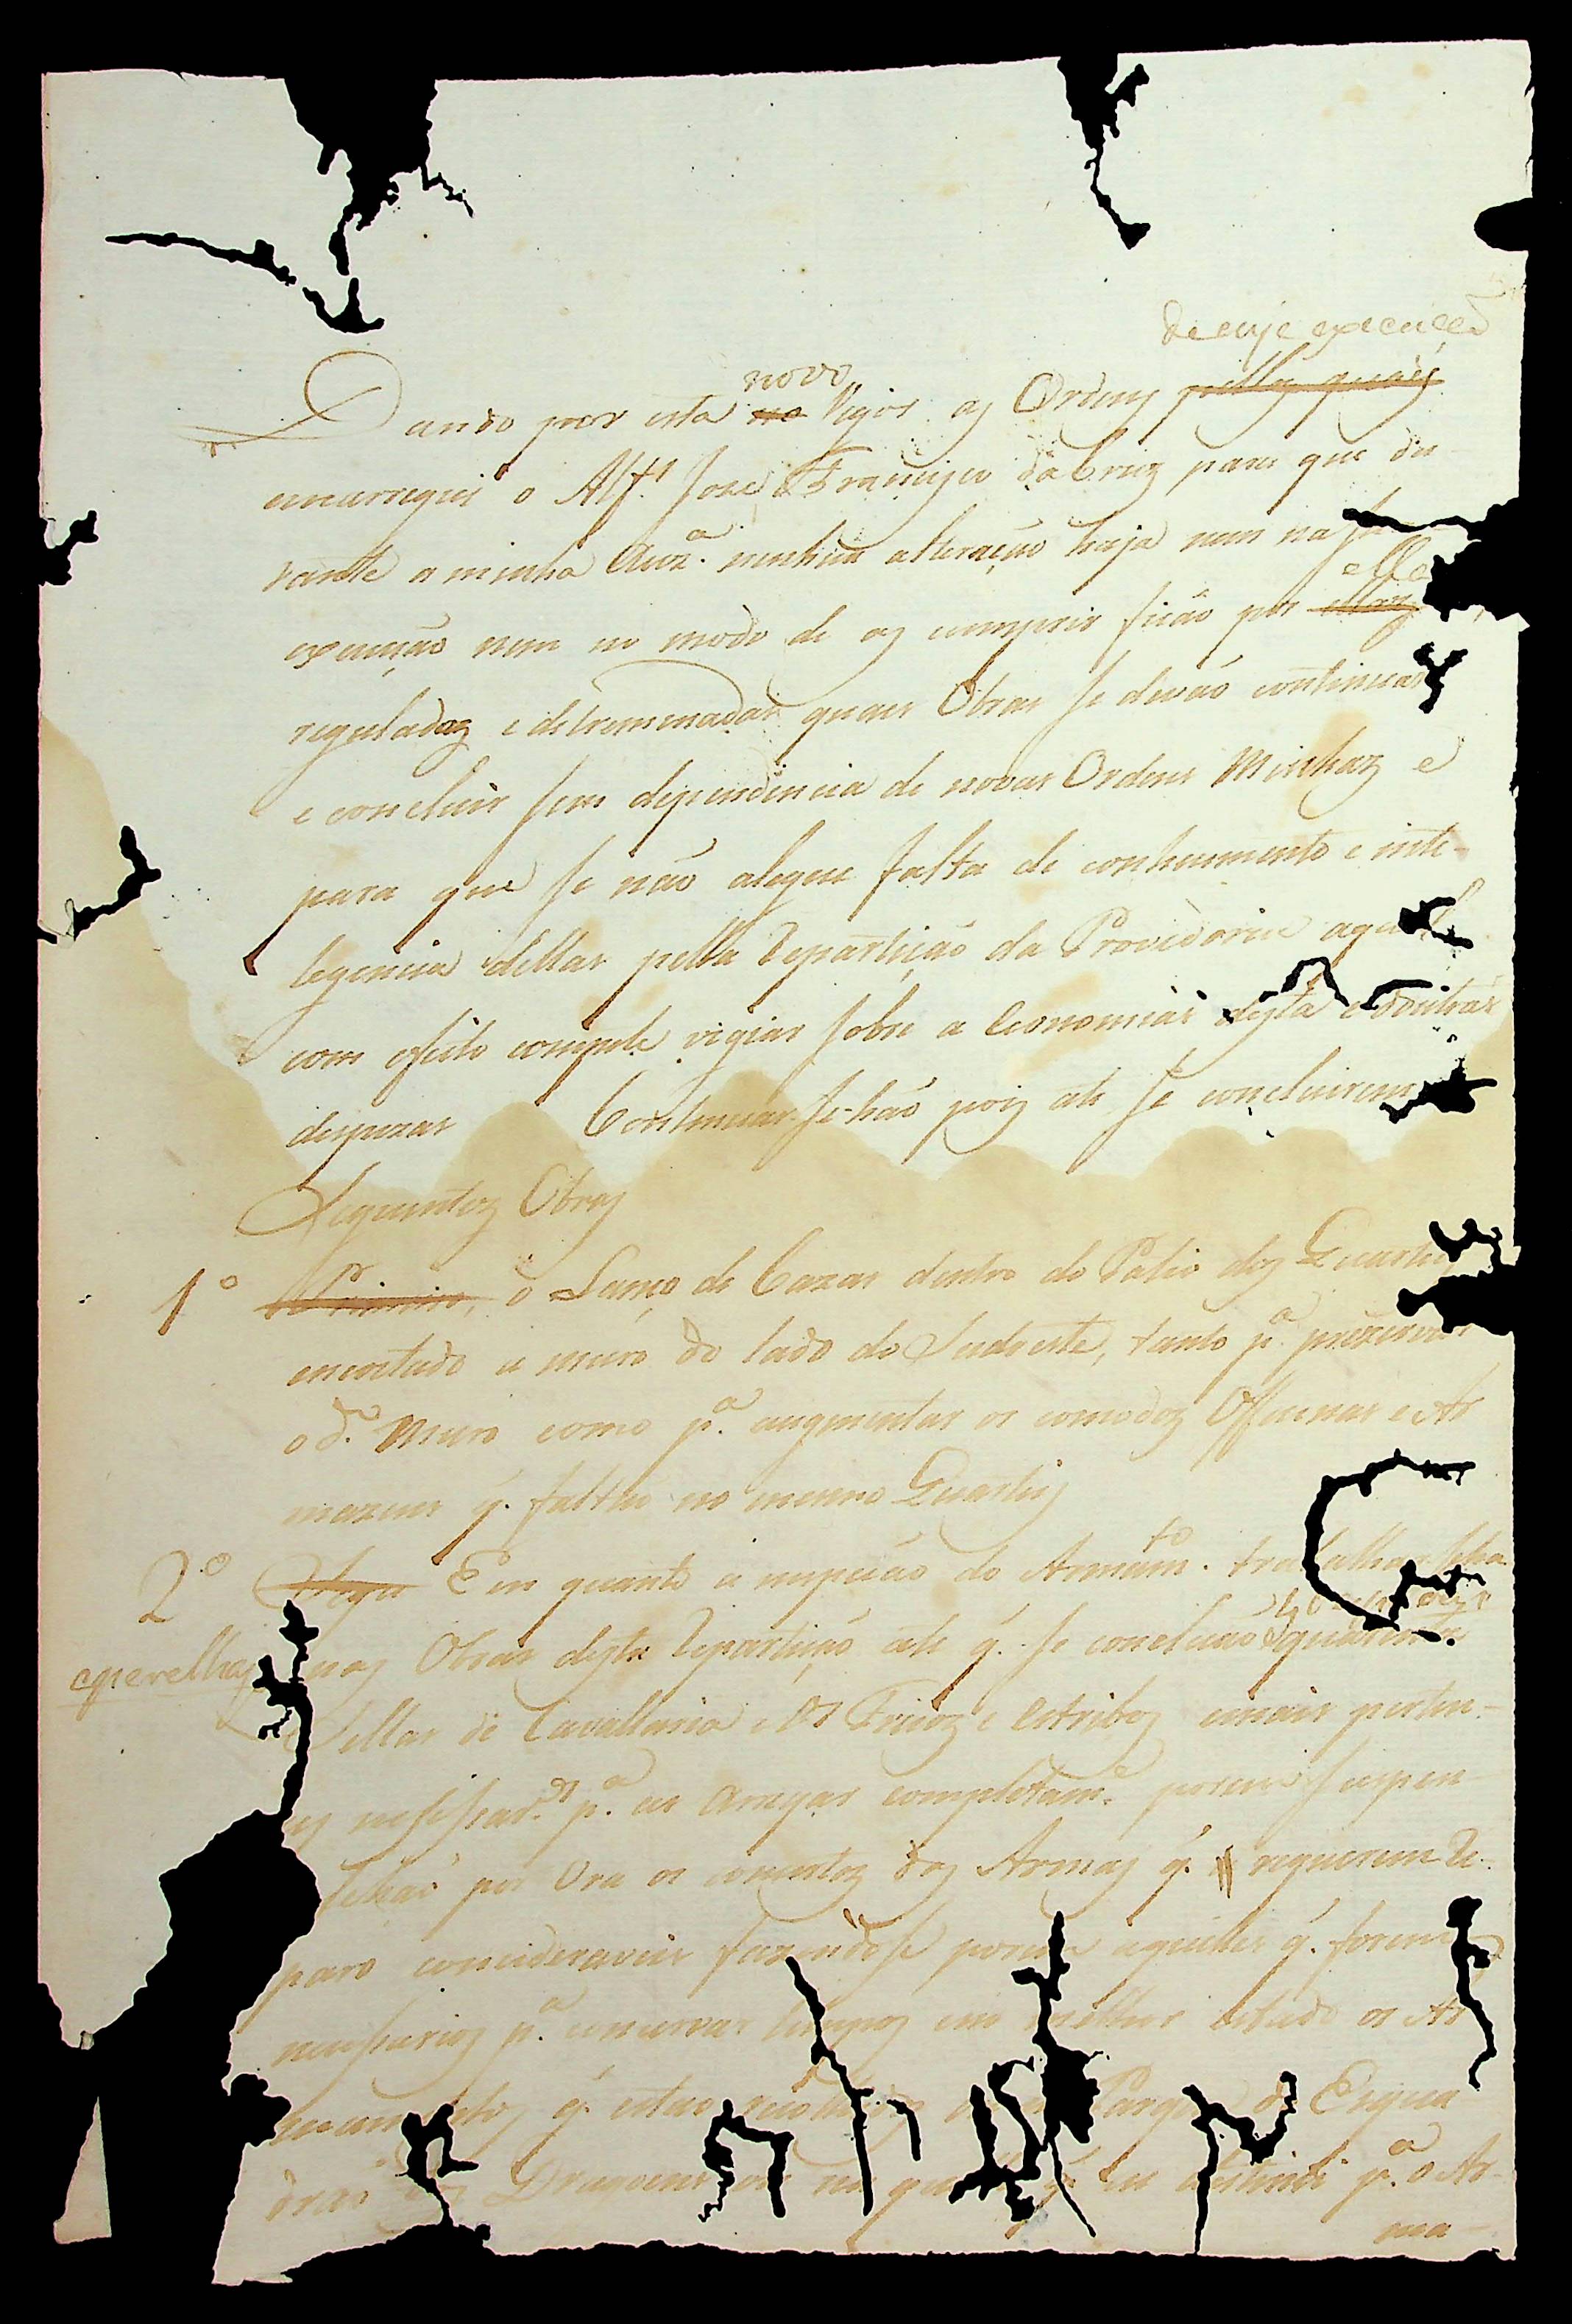 de cuje execução
novo
Dando por esta no Vigor as Ordens pellas quaes
encarreguei o Alf.s Joze Francisco da Cruz para que du
rante a minha Auz.a nenhua alteração haja nem na sua
execução nem no modo de as cumprir ficão por
elle
reguladas e detremenadas quaes Obras se devão continuar
e concluir sem dependencia de novas Ordens Minhas e
para que se não alegue falta de conhecimento e inte-
legencia dellas pella Repartição da Provedoria aqual
com efeito compete vigiar sobre a Economias desta e doutras
despezas Continuar-se-hão pois ate se concluirem
Seguintes Obras
1º Primeiro, o Lanço de Cazas dentro do Patio dos Quarteis
encostado a muro do lado do Sudoeste, tanto p.a prezervar
o d.o Muro como p.a augmentar os comodos Officinas e Ar
mazens q. faltão no mesmo Quarteis
2º Em quanto a inspeção do Armam.to trabalhar
nas Obras desta Repartição ate q. se concluão quarenta
aparelhas
Sellas de Cavallaria e os Freios e Estribos e mais perten-
p.a as Arreyar completam.e porem suspen
por Ora os concertos das Armas q. requerem Re-
paro consideraveis fazendose porem aquelles q. forem
necessarios p.a conservar limpos em melhor estado os Ar
mamentos q. estao Parque Esqua
drão Dragoens p.a o Ar-
ma-